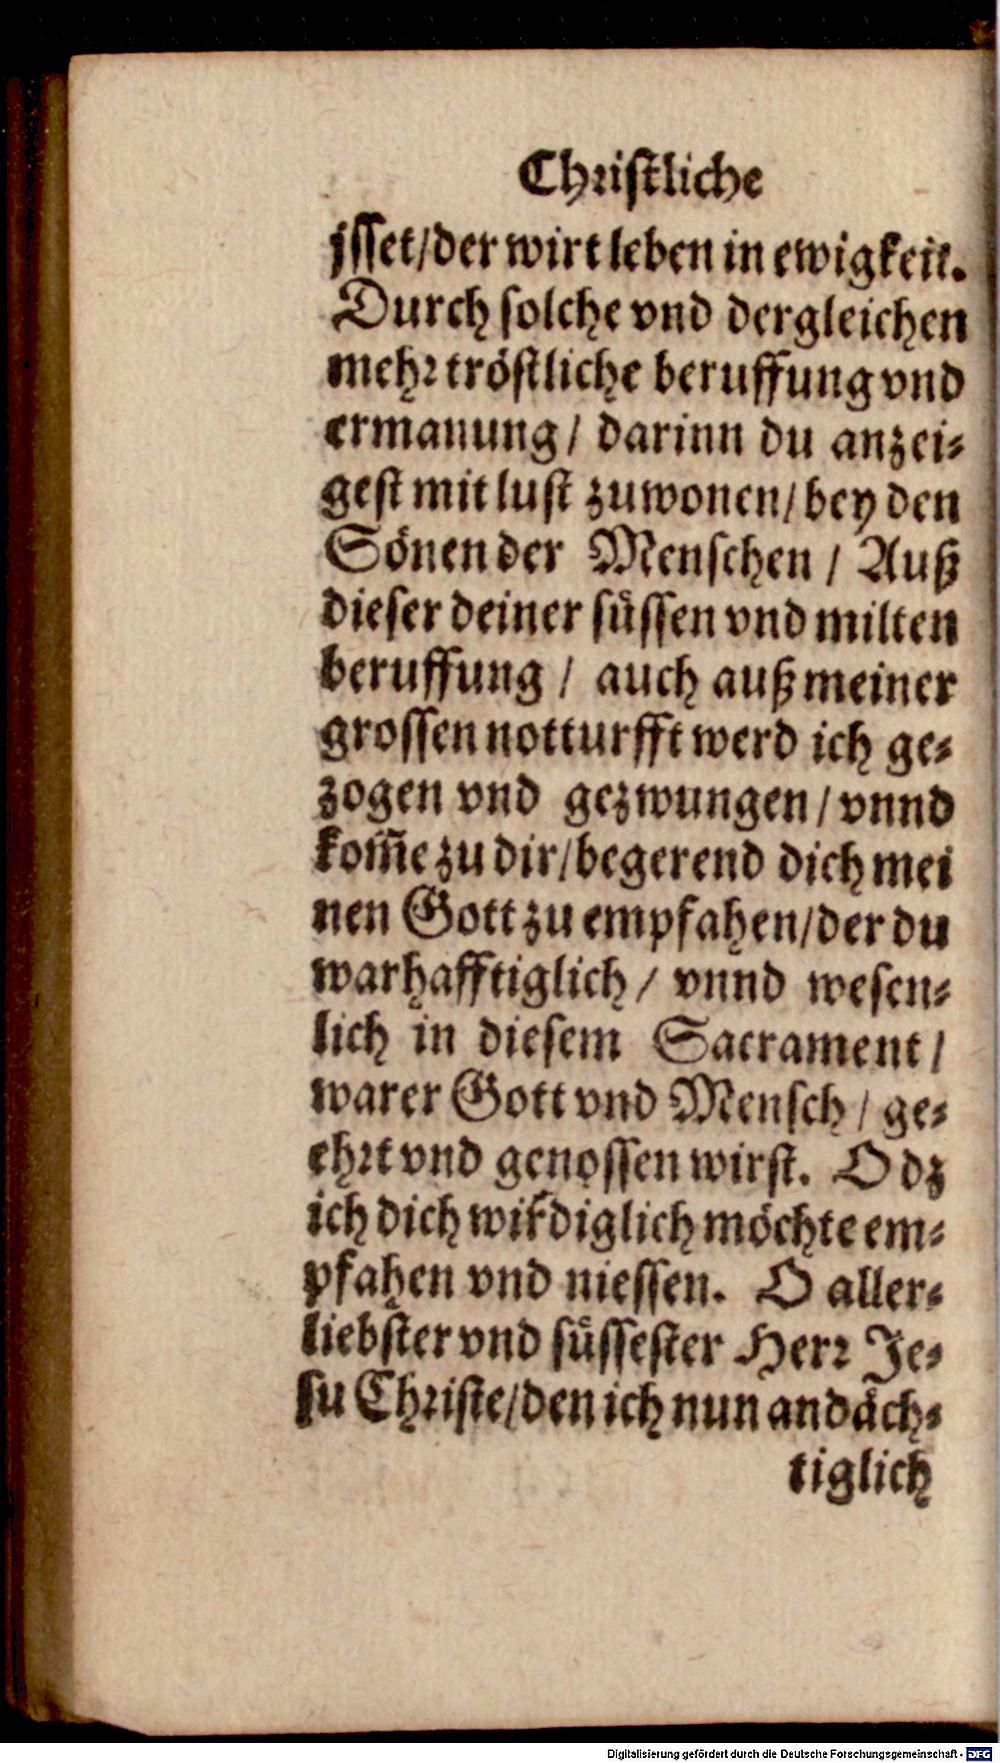 Christliche
jsset/der wirt leben in ewigkeit.
Durch solche vnd dergleichen
mehr tröstliche beruffung vnd
ermanung / darinn du anzei-
gest mit lust zuwonen/bey den
Sönen der Menschen / Auß
dieser deiner süssen vnd milten
beruffung / auch auß meiner
grossen notturfft werd ich ge-
zogen vnd gezwungen / vnnd
kom̃e zu dir/begerend dich mei
nen Gott zu empfahen/der du
warhafftiglich / vnnd wesen-
lich in diesem Sacrament /
warer Gott vnd Mensch / ge-
ehrt vnd genossen wirst. O dz
ich dich wirdiglich möchte em-
pfahen vnd niessen. O aller-
liebster vnd süssester Herr Je-
su Christe/den ich nun andäch-
tiglich
Digitalisierung gefördert durch die Deutsche Forschungsgemeinschaft - DFG